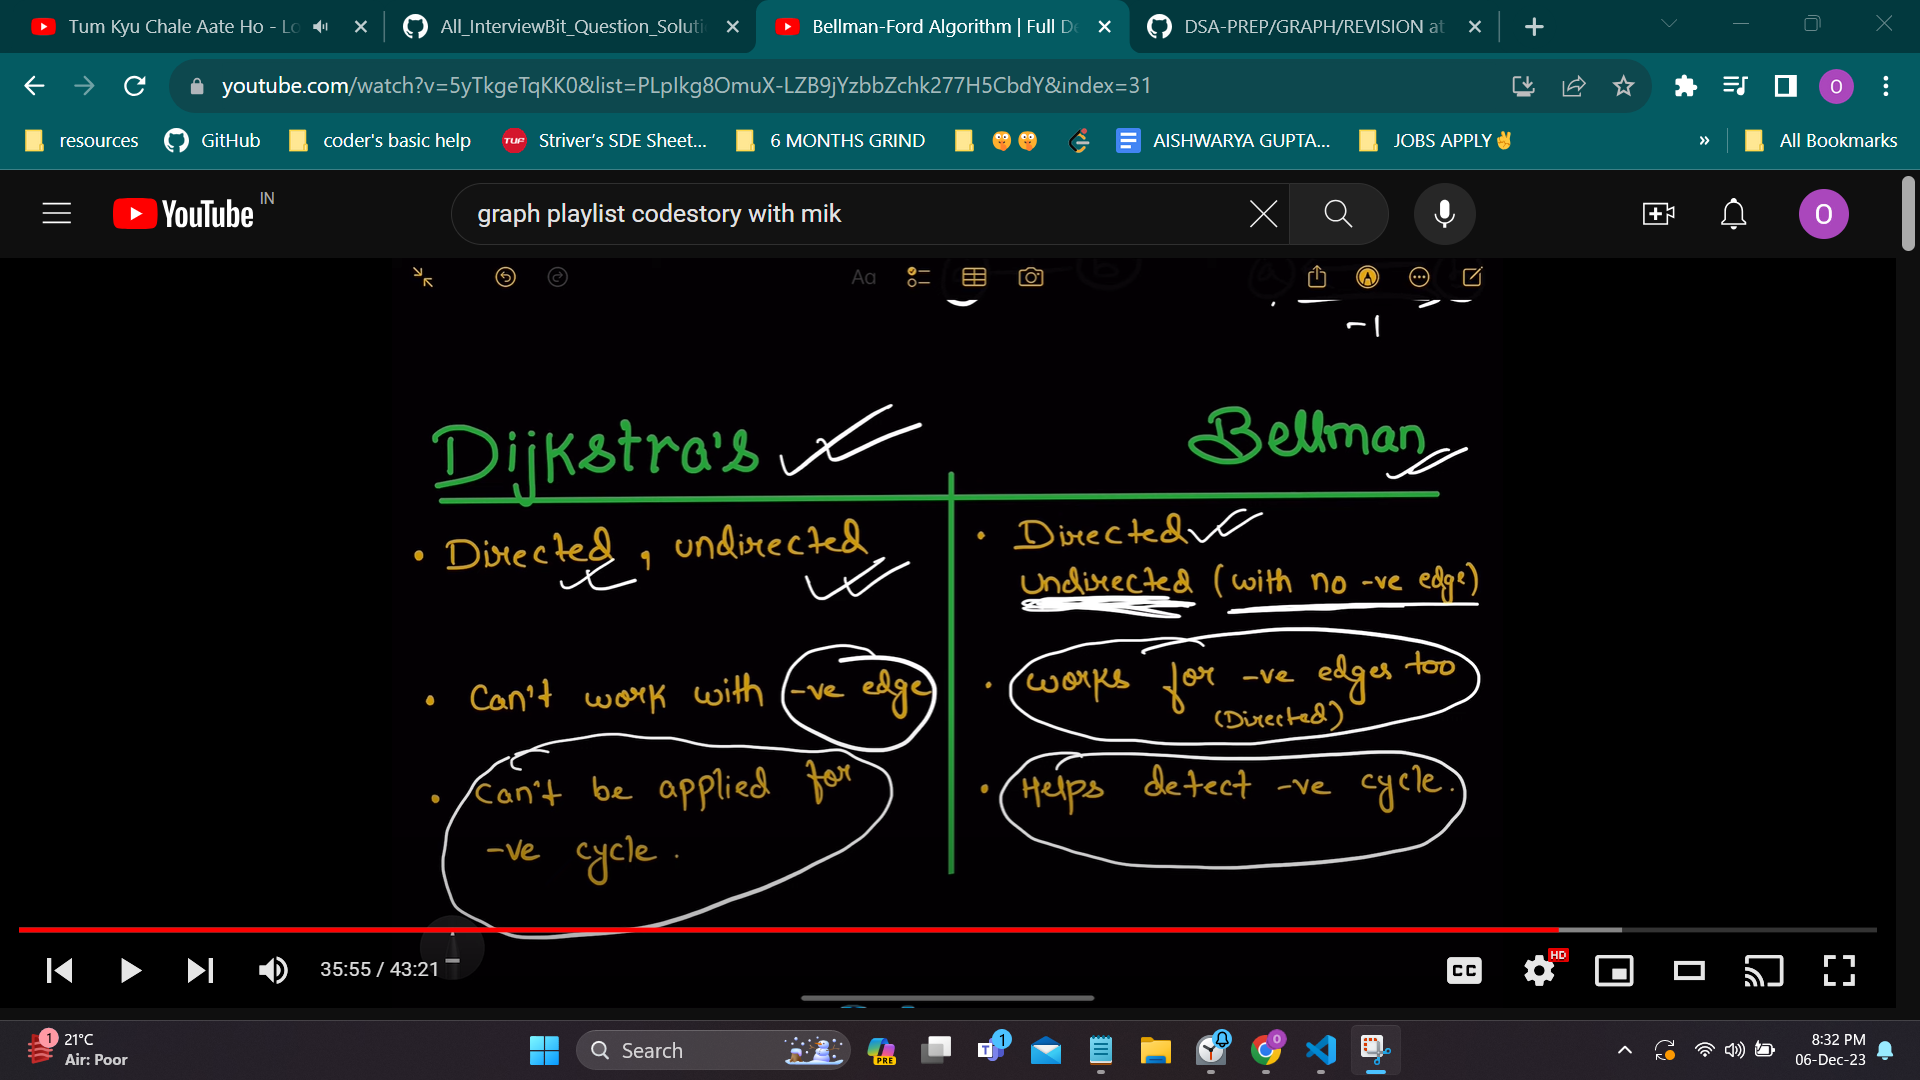 Tum Kyu Chale Aate Ho - Lo
All_InterviewBit_Question_Soluti
Bellman-Ford Algorithm | Full De
DSA-PREP/GRAPH/REVISION at
youtube.com/watch?v=5yTkgeTqKK0&list=PLpIkg8OmuX-LZB9jYzbbZchk277H5CbdY&index=31
O
resources
GitHub
coder's basic help
TUF
Striver's SDE Sheet...
6 MONTHS GRIND
AISHWARYA GUPTA...
JOBS APPLY✌
»
All Bookmarks
YouTube IN
graph playlist codestory with mik
O
Aa
-1
Dijkstra's
Bellman
• Directed, undirected
• Directed
undirected (with no -ve edge)
• Can't work with -ve edge
• works for -ve edges too
(Directed)
• Can't be applied for
-ve cycle.
• Helps detect -ve cycle.
35:55 / 43:21
CC
HD
1
21°C
Air: Poor
Search
PRE
T
1
O
8:32 PM
06-Dec-23